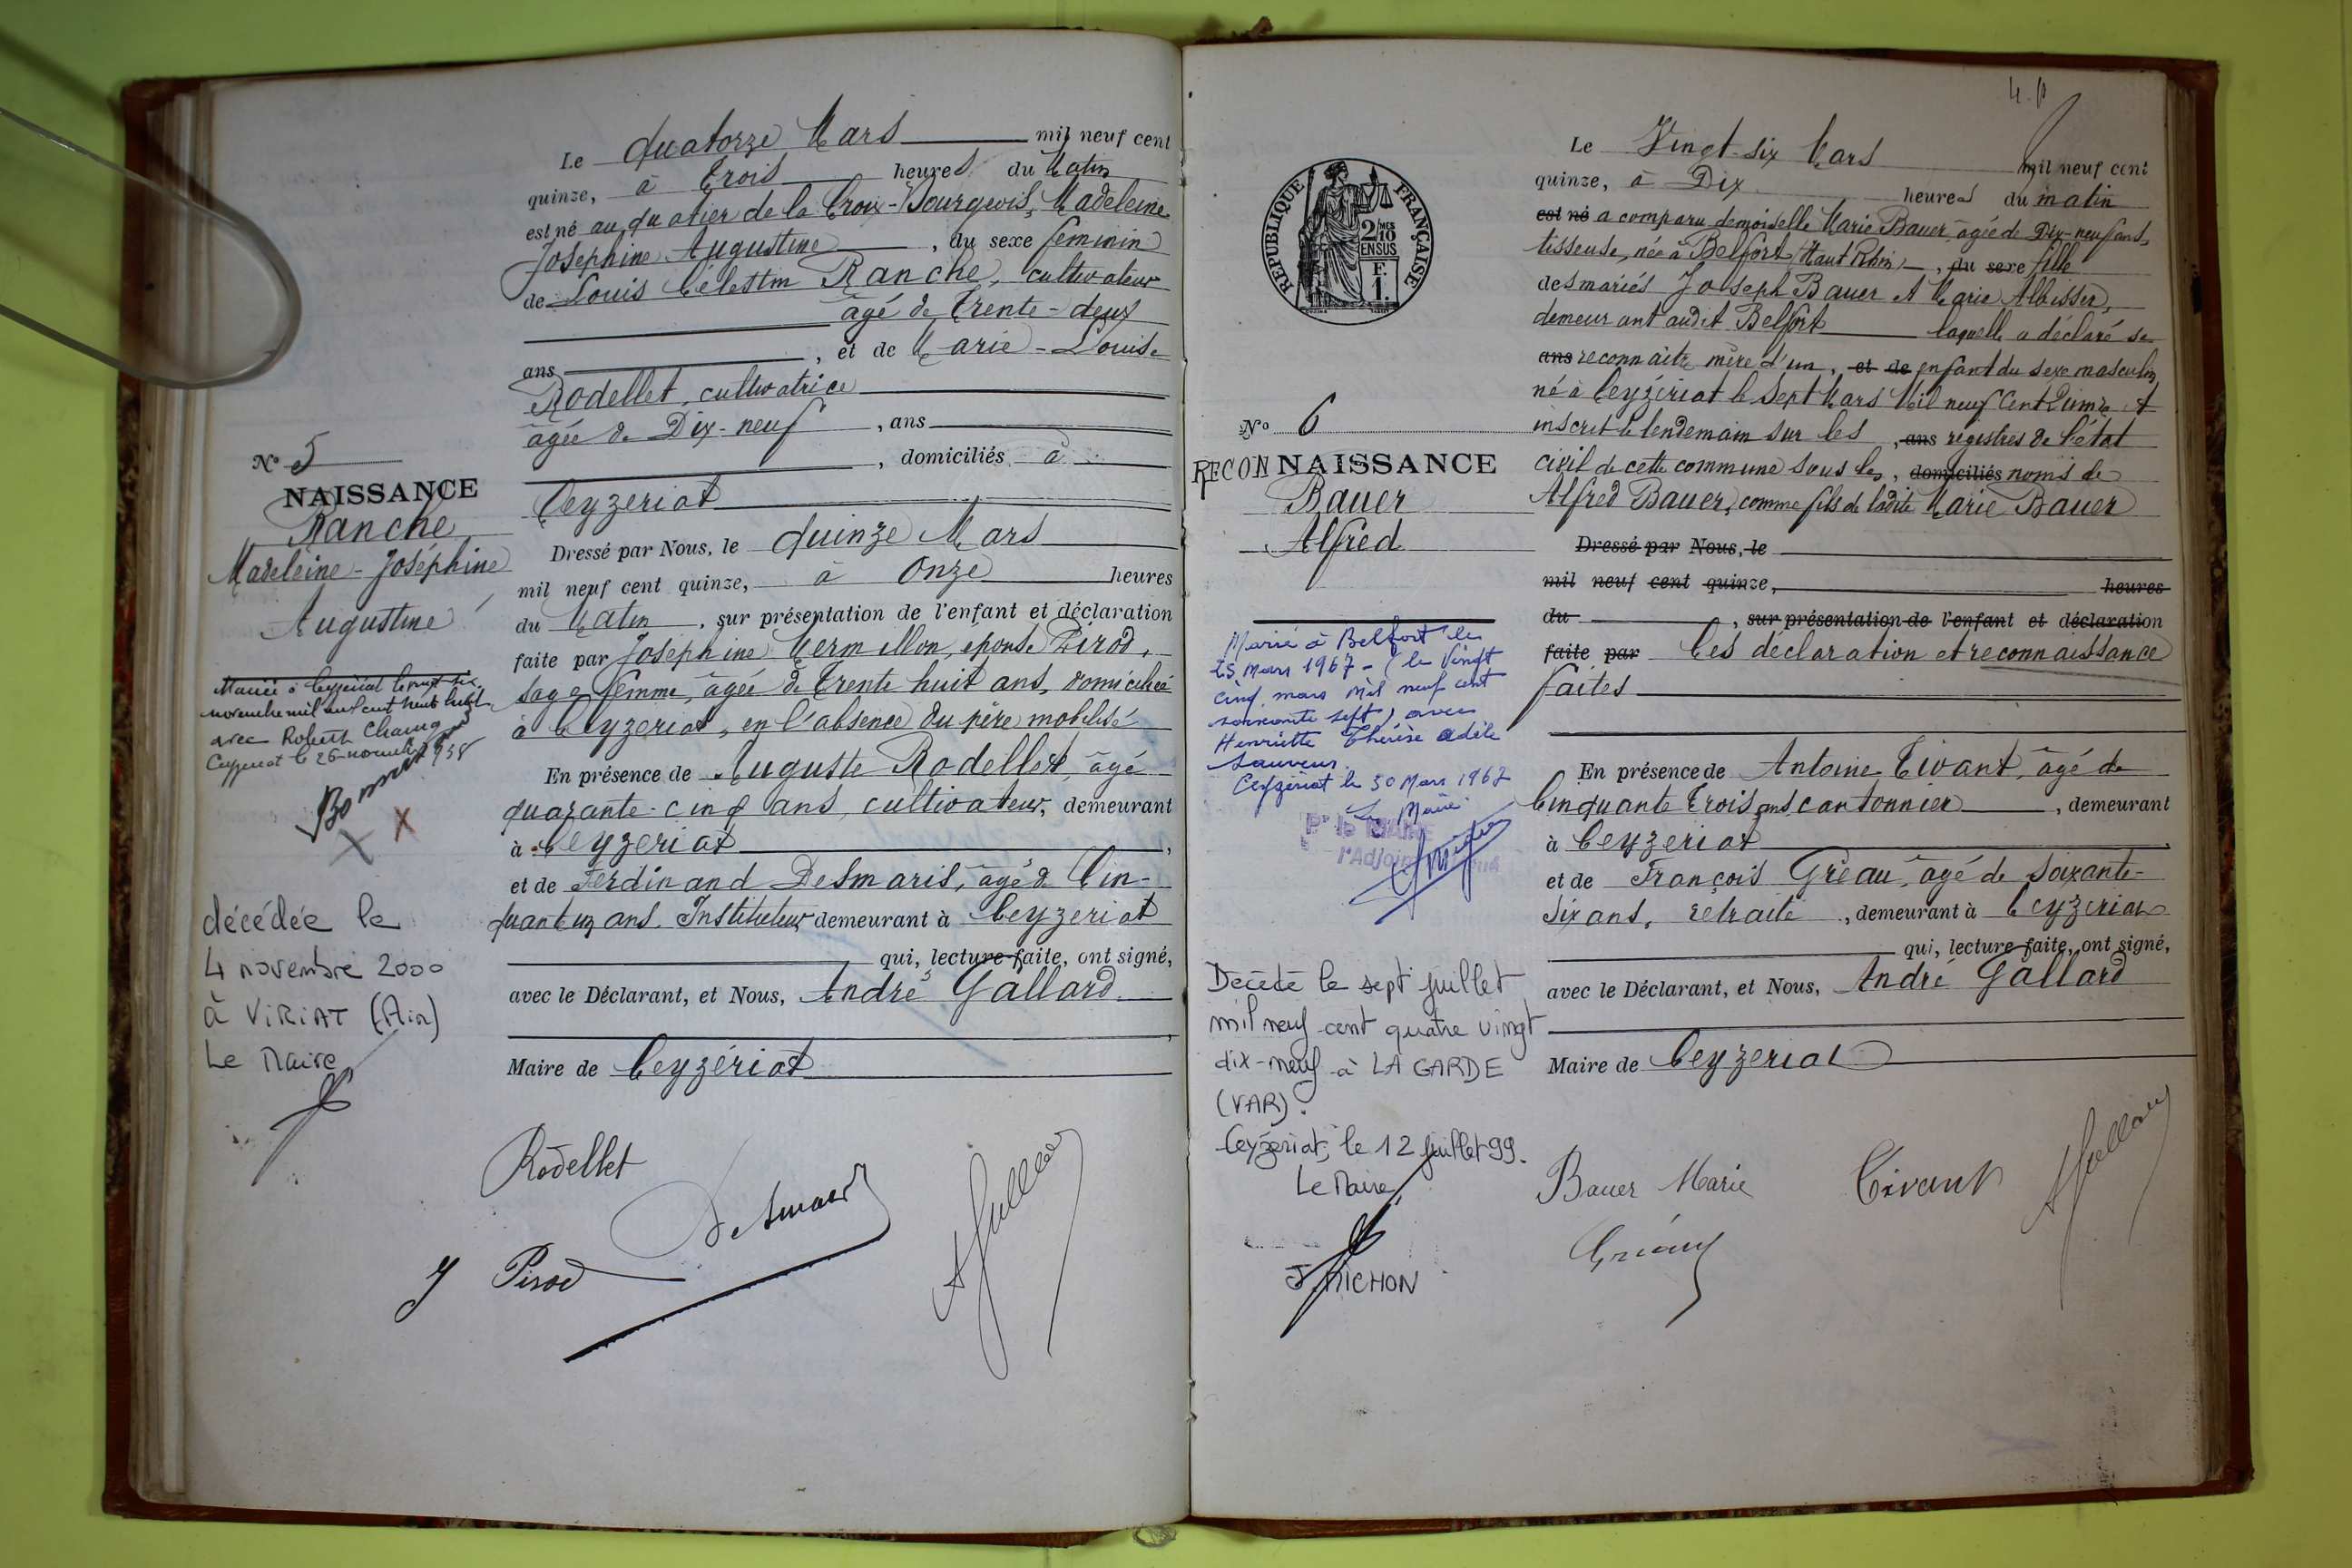 Le Quatorze Mars mil neuf cent
quinze, à Trois heures du Matin
est né au quatier de la Croix-Bourgeois, Madeleine
Joséphine Augustine, du sexe féminin
de Louis Célestin Ranche, cultivateur
âgé de Trente-deux
ans, et de Marie-Louise
Rodellet, cultivatrice
âgée de Dix-neuf, ans
, domiciliés à
Ceyzeriat
Dressé par Nous, le Quinze Mars
mil neuf cent quinze, à Onze heures
du Matin, sur présentation de l'enfant et déclaration
faite par Joséphine Mermillon, épouse Pirod,
sage femme, âgée de Trente huit ans, domiciliée
à Ceyzeriat, en l'absence du père mobilisé
En présence de Auguste Rodellet, âgé
quarante-cinq ans, cultivateur, demeurant
à Ceyzeriat,
et de Ferdinand Desmaris, âgé de Cin-
quante un ans, Instituteur demeurant à Ceyzeriat
qui, lecture faite, ont signé,
avec le Déclarant, et Nous, André Gallard
Maire de Ceyzériat
Rodellet
Desmaris
J Pirod
AGallard
N° 5
NAISSANCE
Ranche
Madeleine-Joséphine
Augustine
Mariée à Ceyzériat le vingt six
novembre mil neuf cent trente huit
avec Robert
Ceyzeriat le 26 novembre 1938
X X
décédée le
4 novembre 2000
à VIRIAT (Ain)
Le Maire
4.
REPUBLIQUE FRANÇAISE
2/10 MES
EN SUS
F.
1.
Le Vingt-six Mars mil neuf cent
quinze, à Dix heures du matin
est né a comparu demoiselle Marie Bauer, âgée de Dix-neuf ans,
tisseuse, née à Belfort (Haut Rhin), du sexe fille
des mariés Joseph Bauer et Marie Albisser,
demeurant audit Belfort laquelle a déclaré se
ans reconnaître mère d'un, et de enfant du sexe masculin
né à Ceyzériat le Sept Mars Mil neuf Cent Quinze et
inscrit le lendemain sur les, ans registres de l'état
civil de cette commune sous les, domiciliés noms de
Alfred Bauer, comme fils de ladite Marie Bauer
Dressé par Nous, le
mil neuf cent quinze, heures
du, sur présentation de l'enfant et déclaration
faite par Ces déclaration et reconnaissance
faites
En présence de Antoine Tivant, âgé de
Cinquante Trois ans cantonnier, demeurant
à Ceyzeriat
et de François Gréau, âgé de Soixante-
Six ans, retraité, demeurant à Ceyzeriat
qui, lecture faite, ont signé,
avec le Déclarant, et Nous, André Gallard
Maire de Ceyzeriat
Bauer Marie Tivant AGallard
Gréau
N° 6
RECONNAISSANCE
Bauer
Alfred
Marié à Belfort le
25 Mars 1967 - (le Vingt
cinq mars mil neuf cent
soixante sept) avec
Henriette Thérèse Adèle
Sauveur.
Ceyzériat le 30 Mars 1967
Le Maire
Pr le MAIRE
l'Adjoint
Décédé le sept juillet
mil neuf cent quatre vingt
dix-neuf à LA GARDE
(VAR).
Ceyzériat, le 12 juillet 99.
Le Maire,
J. MICHON